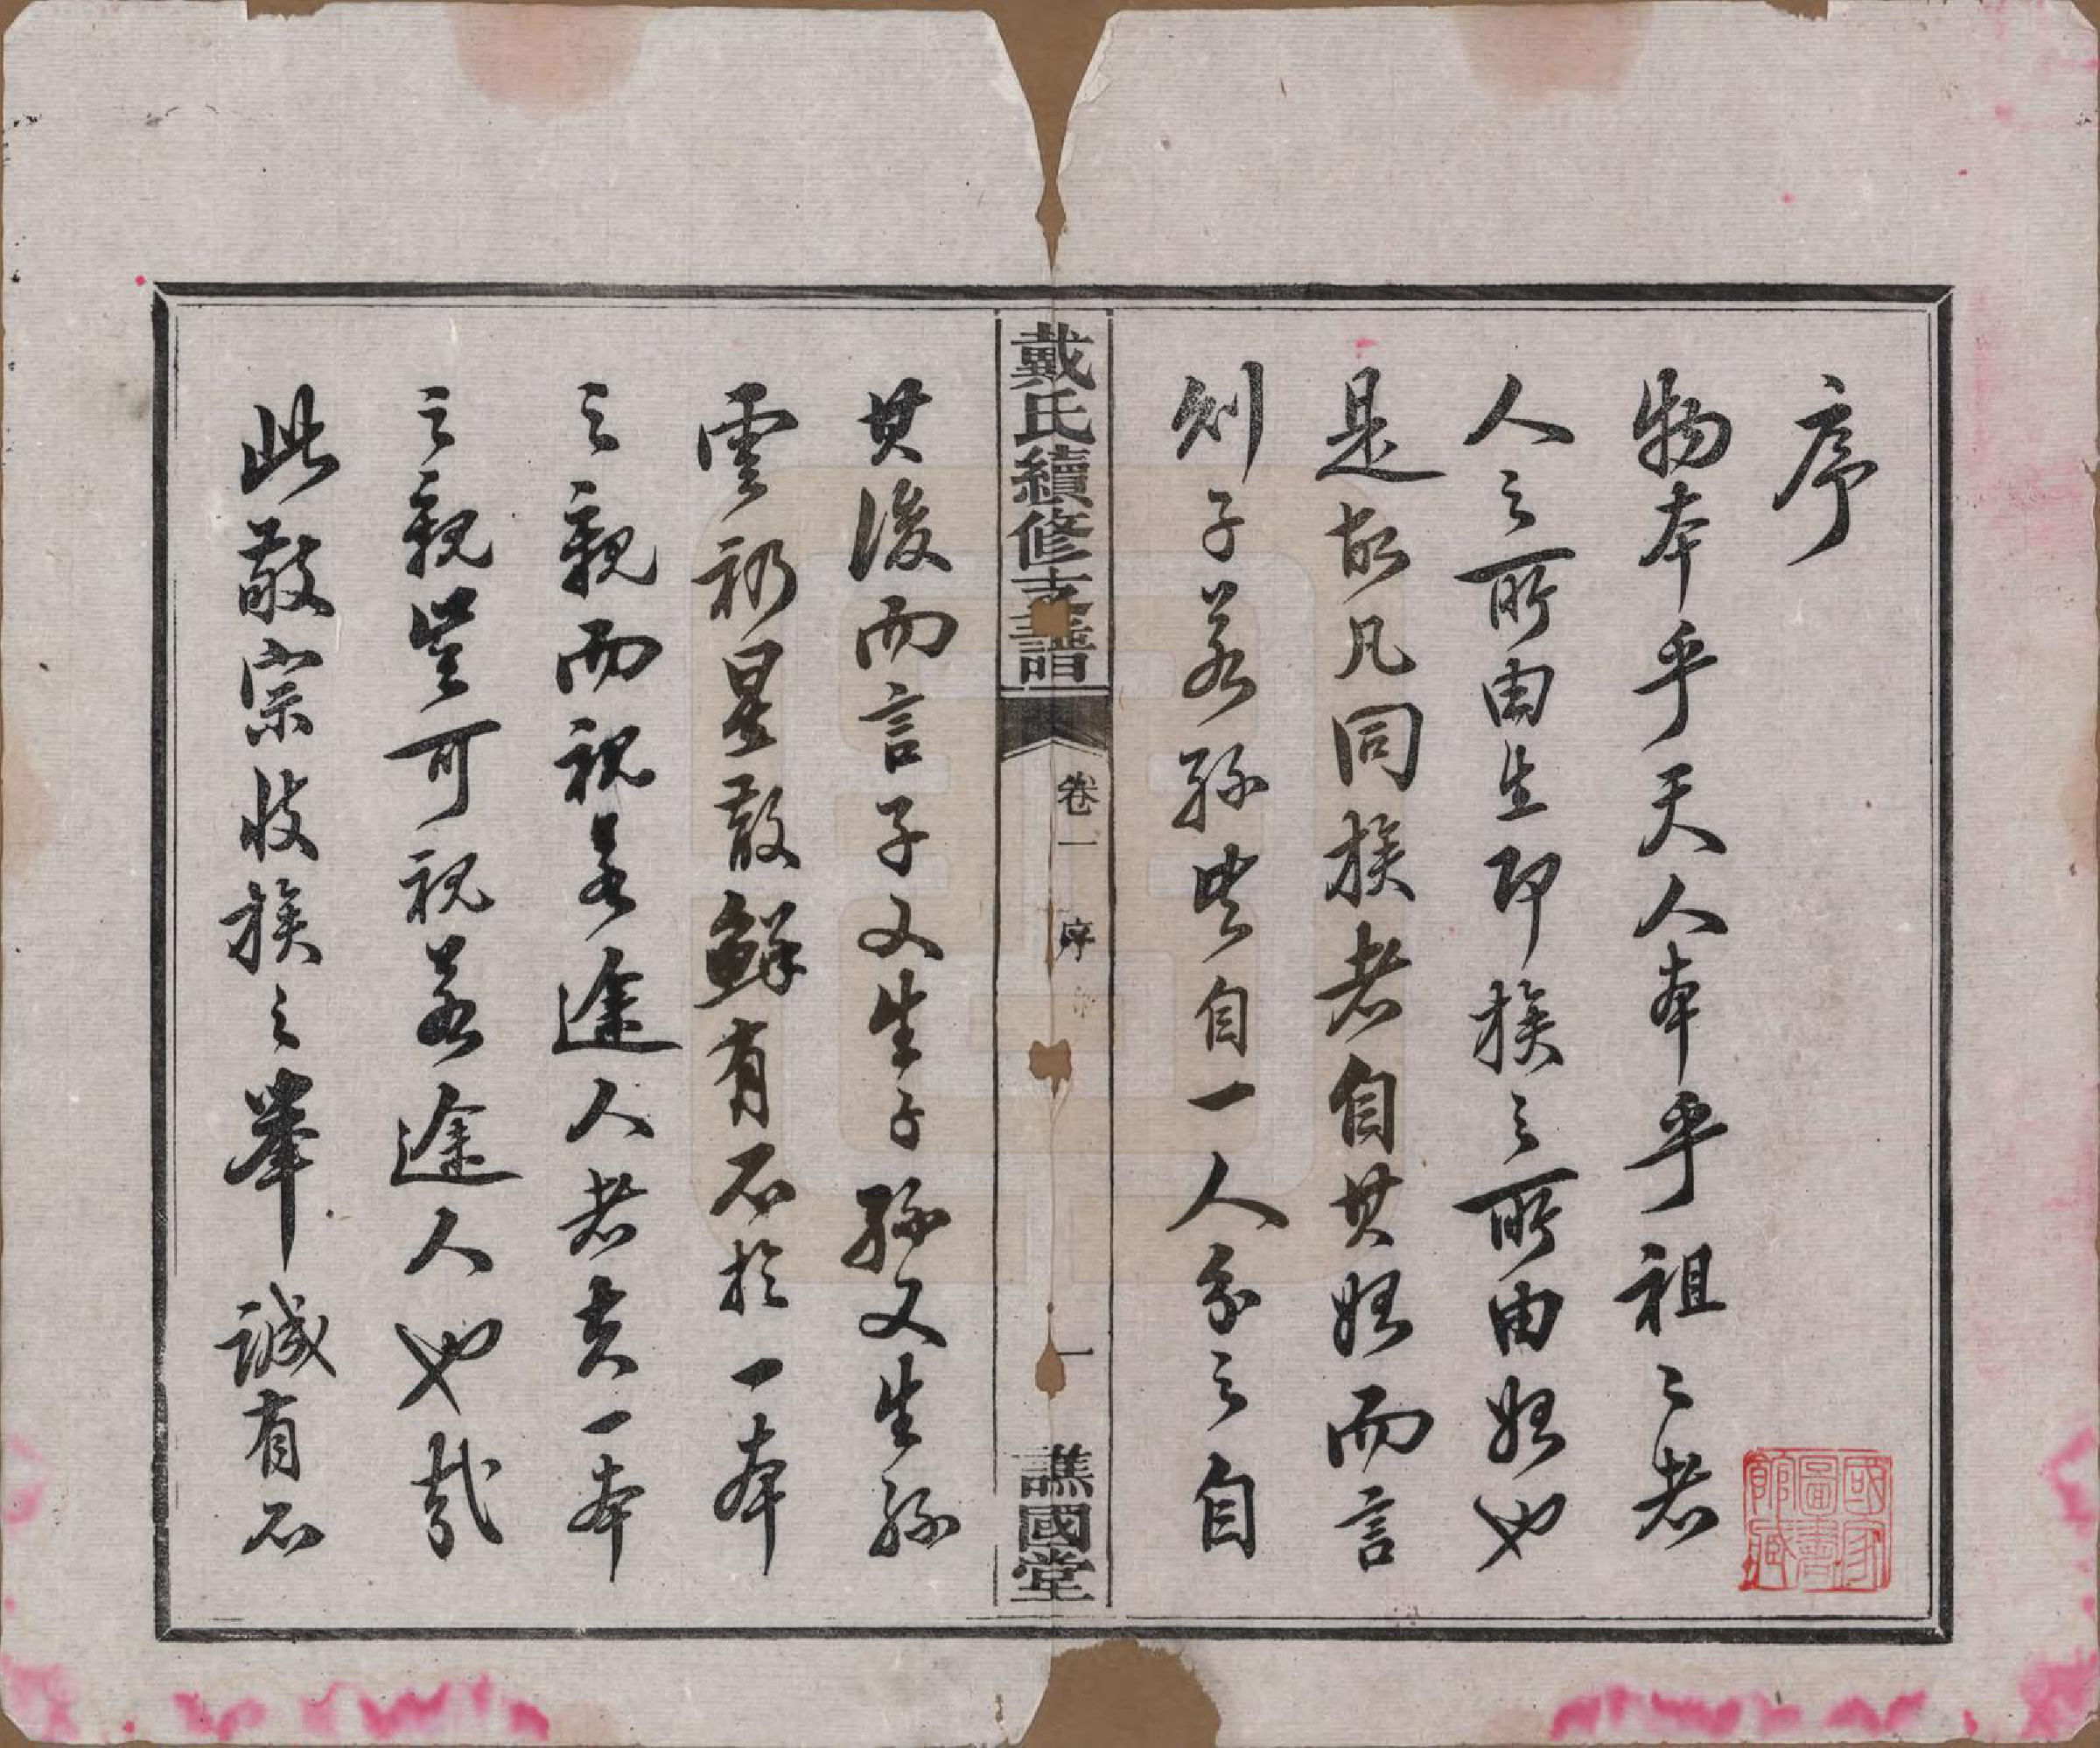 序
物本乎天人本乎祖祖者
人之所由生即族之所由始也
是故凡同族者自其始而言
則子若孫皆自一人分之自
戴氏續修支譜
卷一
序
一
譙國堂
其後而言子又生子孫又生孫
雲礽星散鮮有不於一本
之親而視若途人者夫一本
之親豈可視若途人也哉
此敬宗收族之舉誠有不
國家圖書館藏